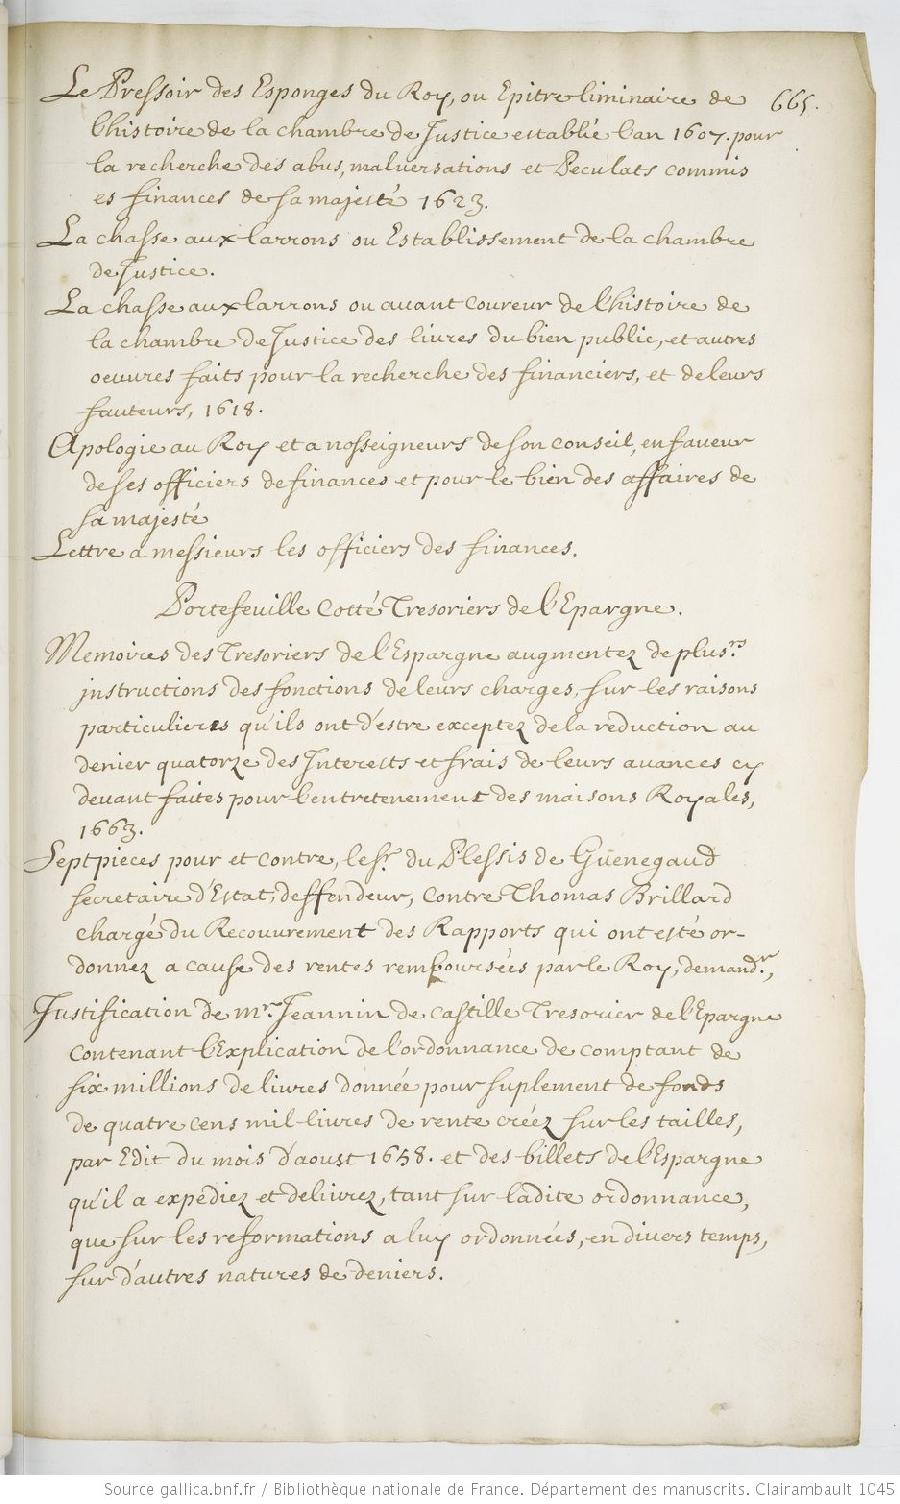 Le Pressoir des Esponges du Roy, ou Epitre liminaire de 665.
l'histoire de la chambre de Justice establie l'an 1607. pour
la recherche des abus, malversations et Peculats commis
es finances de sa majesté 1623.
La chasse aux larrons ou Establissement de la chambre
de Justice.
La chasse aux larrons ou avant coureur de l'histoire de
la chambre de Justice des livres du bien public, et autres
oeuvres faits pour la recherche des financiers, et de leurs
fauteurs, 1618.
Apologie au Roy et a nosseigneurs de son conseil, en faveur
de ses officiers de finances et pour le bien des affaires de
sa majesté
Lettre a messieurs les officiers des finances.
Portefeuille cotté Tresoriers de l'Epargne.
Memoires des Tresoriers de l'Espargne augmentez de plusrs
jnstructions des fonctions de leurs charges, sur les raisons
particulieres qu'ils ont d'estre exceptez de la reduction au
denier quatorze des Interests et frais de leurs avances cy
devant faites pour l'entretenement des maisons Royales,
1663.
Sept pieces pour et contre, le sr. du Plessis de Guenegaud
secretaire d'Estat, deffendeur, contre Thomas Brillard
chargé du Recouvrement des Rapports qui ont esté or-
donnez a cause des rentes remboursées par le Roy, demandr.,
Justification de mr. Jeannin de Castille Tresorier de l'Epargne
contenant l'Explication de l'ordonnance de comptant de
six millions de livres donnée pour suplement de fonds
de quatre cens mil livres de rente créez sur les tailles,
par Edit du mois d'aoust 1658. et des billets de l'Espargne
qu'il a expediez et delivrez, tant sur ladite ordonnance,
que sur les reformations a luy ordonnées, en divers temps,
sur d'autres natures de deniers.
Source gallica.bnf.fr / Bibliothèque nationale de France. Département des manuscrits. Clairambault 1045